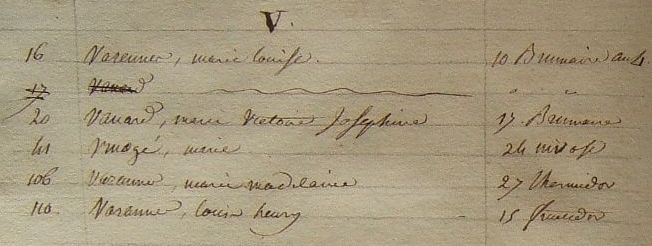 V.
16 Varenner, marie louise. 10 Brumaire an 4.
17 Vanard " "
20 Vanard, marie Victoire Josephine 17 Brumaire
41 marie 24 nivose
106 Varenner, marie madelaine 27 thermidor
110. Varanner, louis henry 15 fructidor